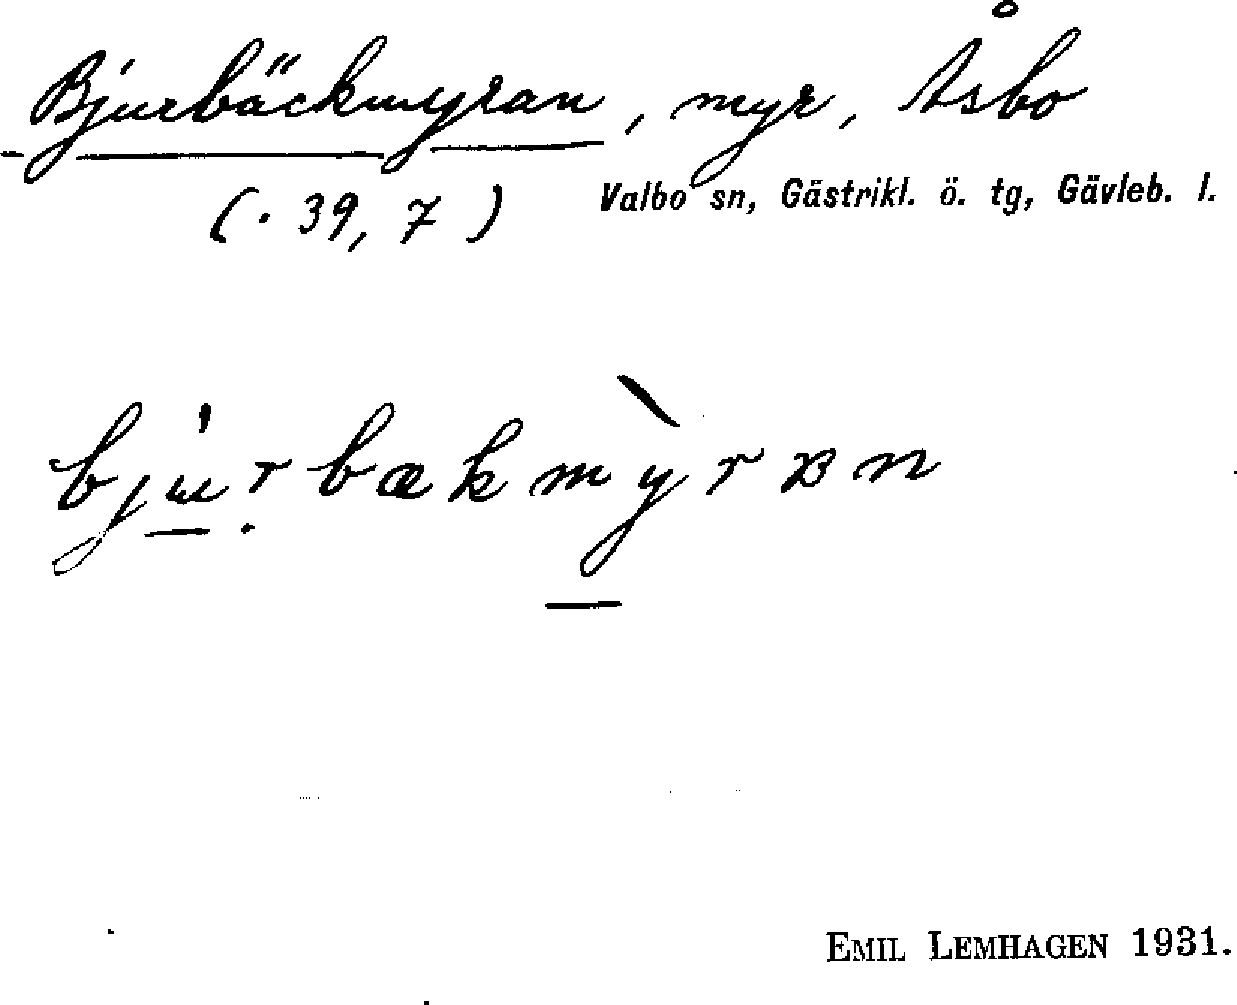 Bjurbäckmyran, myr, Åsbo
(· 39, 7) Valbo sn, Gästrikl. ö. tg, Gävleb. l.
bjúṛbækmỳrɐn
EMIL LEMHAGEN 1931.